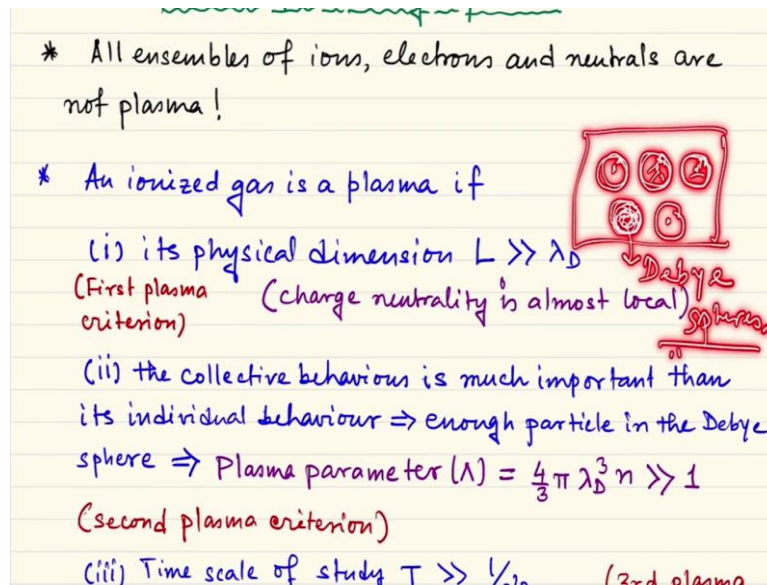 * All ensembles of ions, electrons and neutrals are
not plasma!
* An ionized gas is a plasma if
(i) its physical dimension L >> λ_D
Debye
spheres
(First plasma criterion) (charge neutrality is almost local)
(ii) the collective behaviour is much important than
its individual behaviour ⇒ enough particle in the Debye
sphere ⇒ Plasma parameter (Λ) = 4/3 π λ_D³ n >> 1
(second plasma criterion)
(iii) Time scale of study T >> (3rd plasma